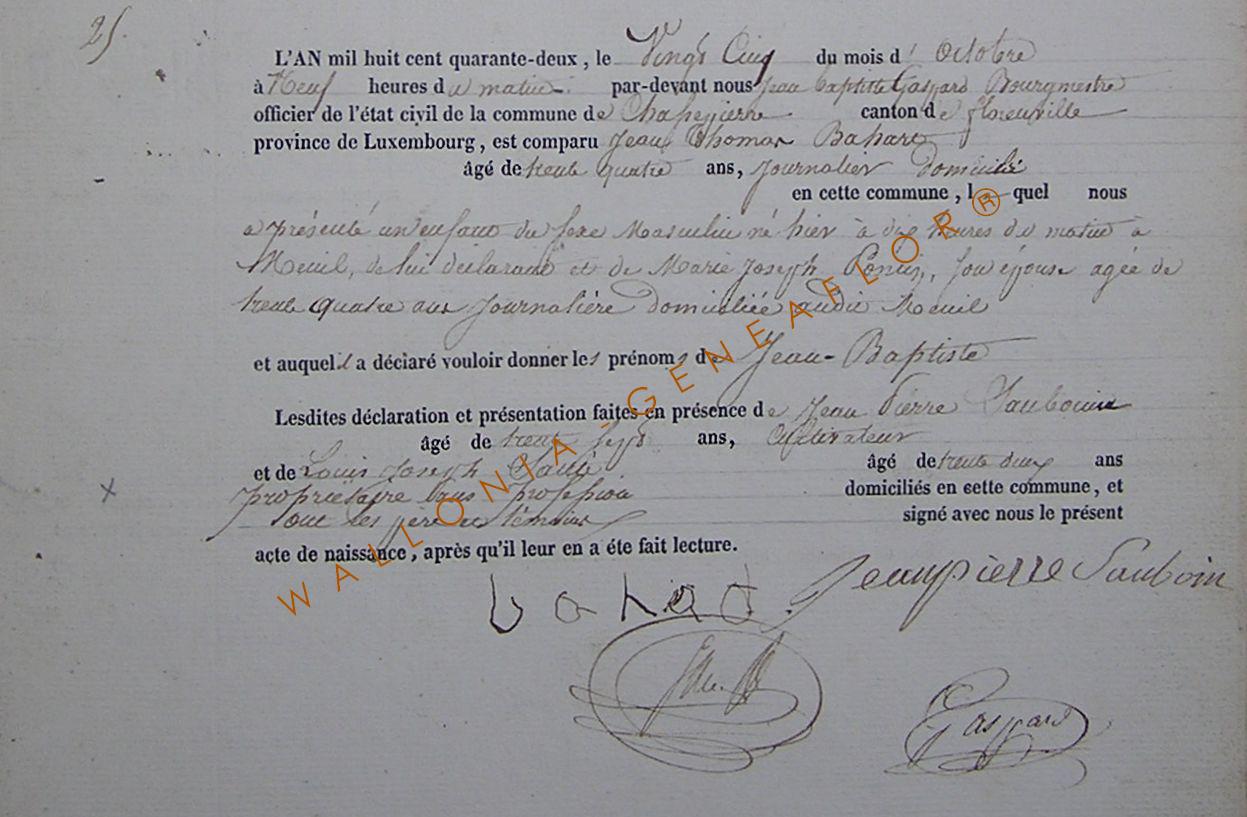 25.
L'AN mil huit cent quarante-deux, le Vingt Cinq du mois d' Octobre
à Neuf heures du matin par-devant nous Jean baptiste Gaspard Bourgmestre
officier de l'état civil de la commune de canton de florenville
province de Luxembourg, est comparu Jean Thomas
âgé de trente quatre ans, Journalier domicilié
en cette commune, le quel nous
a présenté un enfant du sexe Masculin né hier à dix heures du matin à
Menil, de lui déclarant et de Marie Joseph son épouse agée de
trente quatre ans Journalière domiciliée audit Menil
et auquel il a déclaré vouloir donner les prénoms de Jean-Baptiste
Lesdites déclaration et présentation faites en présence de Jean Pierre Sauboin
âgé de trente sept ans, Cultivateur
et de Louis Joseph âgé de trente deux ans
propriétaire sans profession domiciliés en cette commune, et
ont les père et témoins signé avec nous le présent
acte de naissance, après qu'il leur en a éte fait lecture.
Jeanpierre Sauboin
Gaspard
WALLONIA-GENEAFLOR®